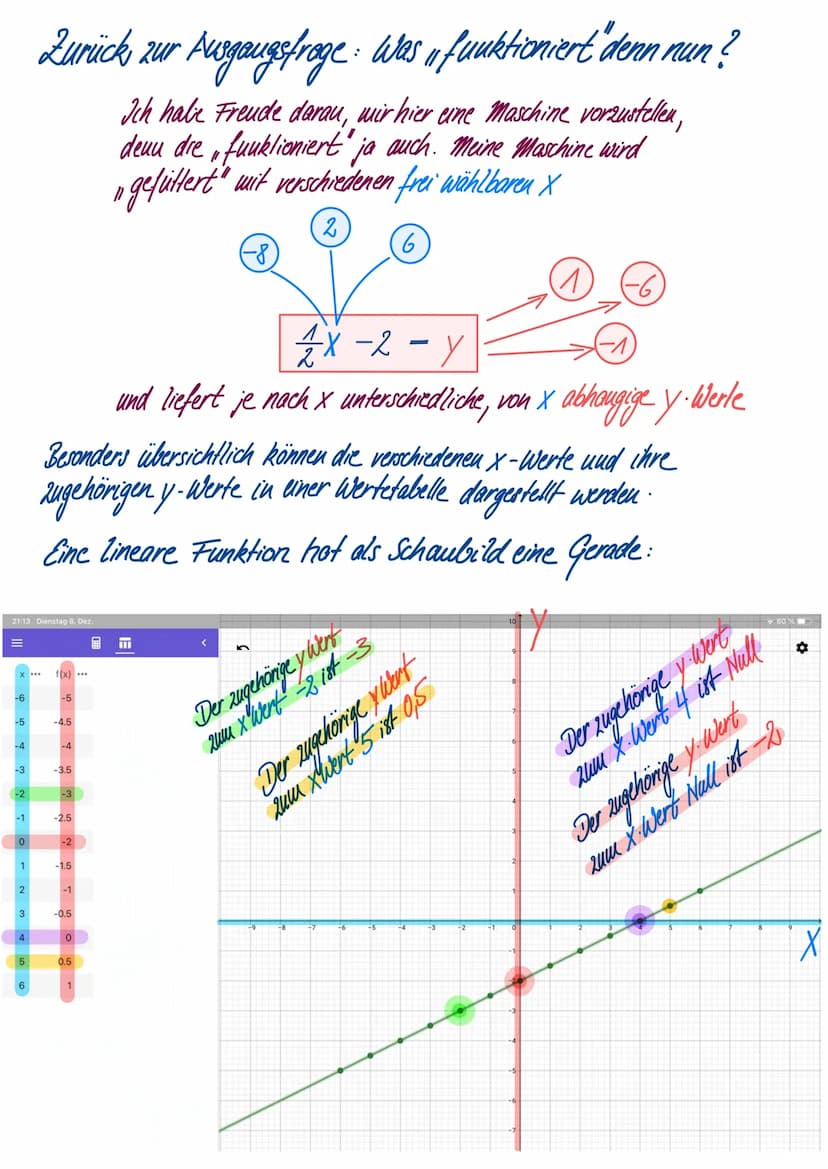 Zurück zur Ausgangsfrage: Was „funktioniert" denn nun?
Ich habe Freude daran, mir hier eine Maschine vorzustellen,
denn die „funktioniert" ja auch. Meine Maschine wird
„gefüttert" mit verschiedenen frei wählbaren X
-8
2
6
1
-6
-1
1/2 X - 2 = y
und liefert je nach x unterschiedliche, von x abhängige y-Werte
Besonders übersichtlich können die verschiedenen x-Werte und ihre
zugehörigen y-Werte in einer Wertetabelle dargestellt werden.
Eine lineare Funktion hat als Schaubild eine Gerade:
21:13 Dienstag 8. Dez.
60 %
x ••• f(x) •••
-6 -5
-5 -4.5
-4 -4
-3 -3.5
-2 -3
-1 -2.5
0 -2
1 -1.5
2 -1
3 -0.5
4 0
5 0.5
6 1
Der zugehörige y Wert
zum x Wert -2 ist -3
Der zugehörige y Wert
zum x Wert 5 ist 0,5
Der zugehörige y-Wert
zum x-Wert 4 ist Null
Der zugehörige y-Wert
zum x-Wert Null ist -2
y
10
9
8
7
6
5
4
3
2
1
-9 -8 -7 -6 -5 -4 -3 -2 -1 0 1 2 3 4 5 6 7 8 9
X
-1
-2
-3
-4
-5
-6
-7